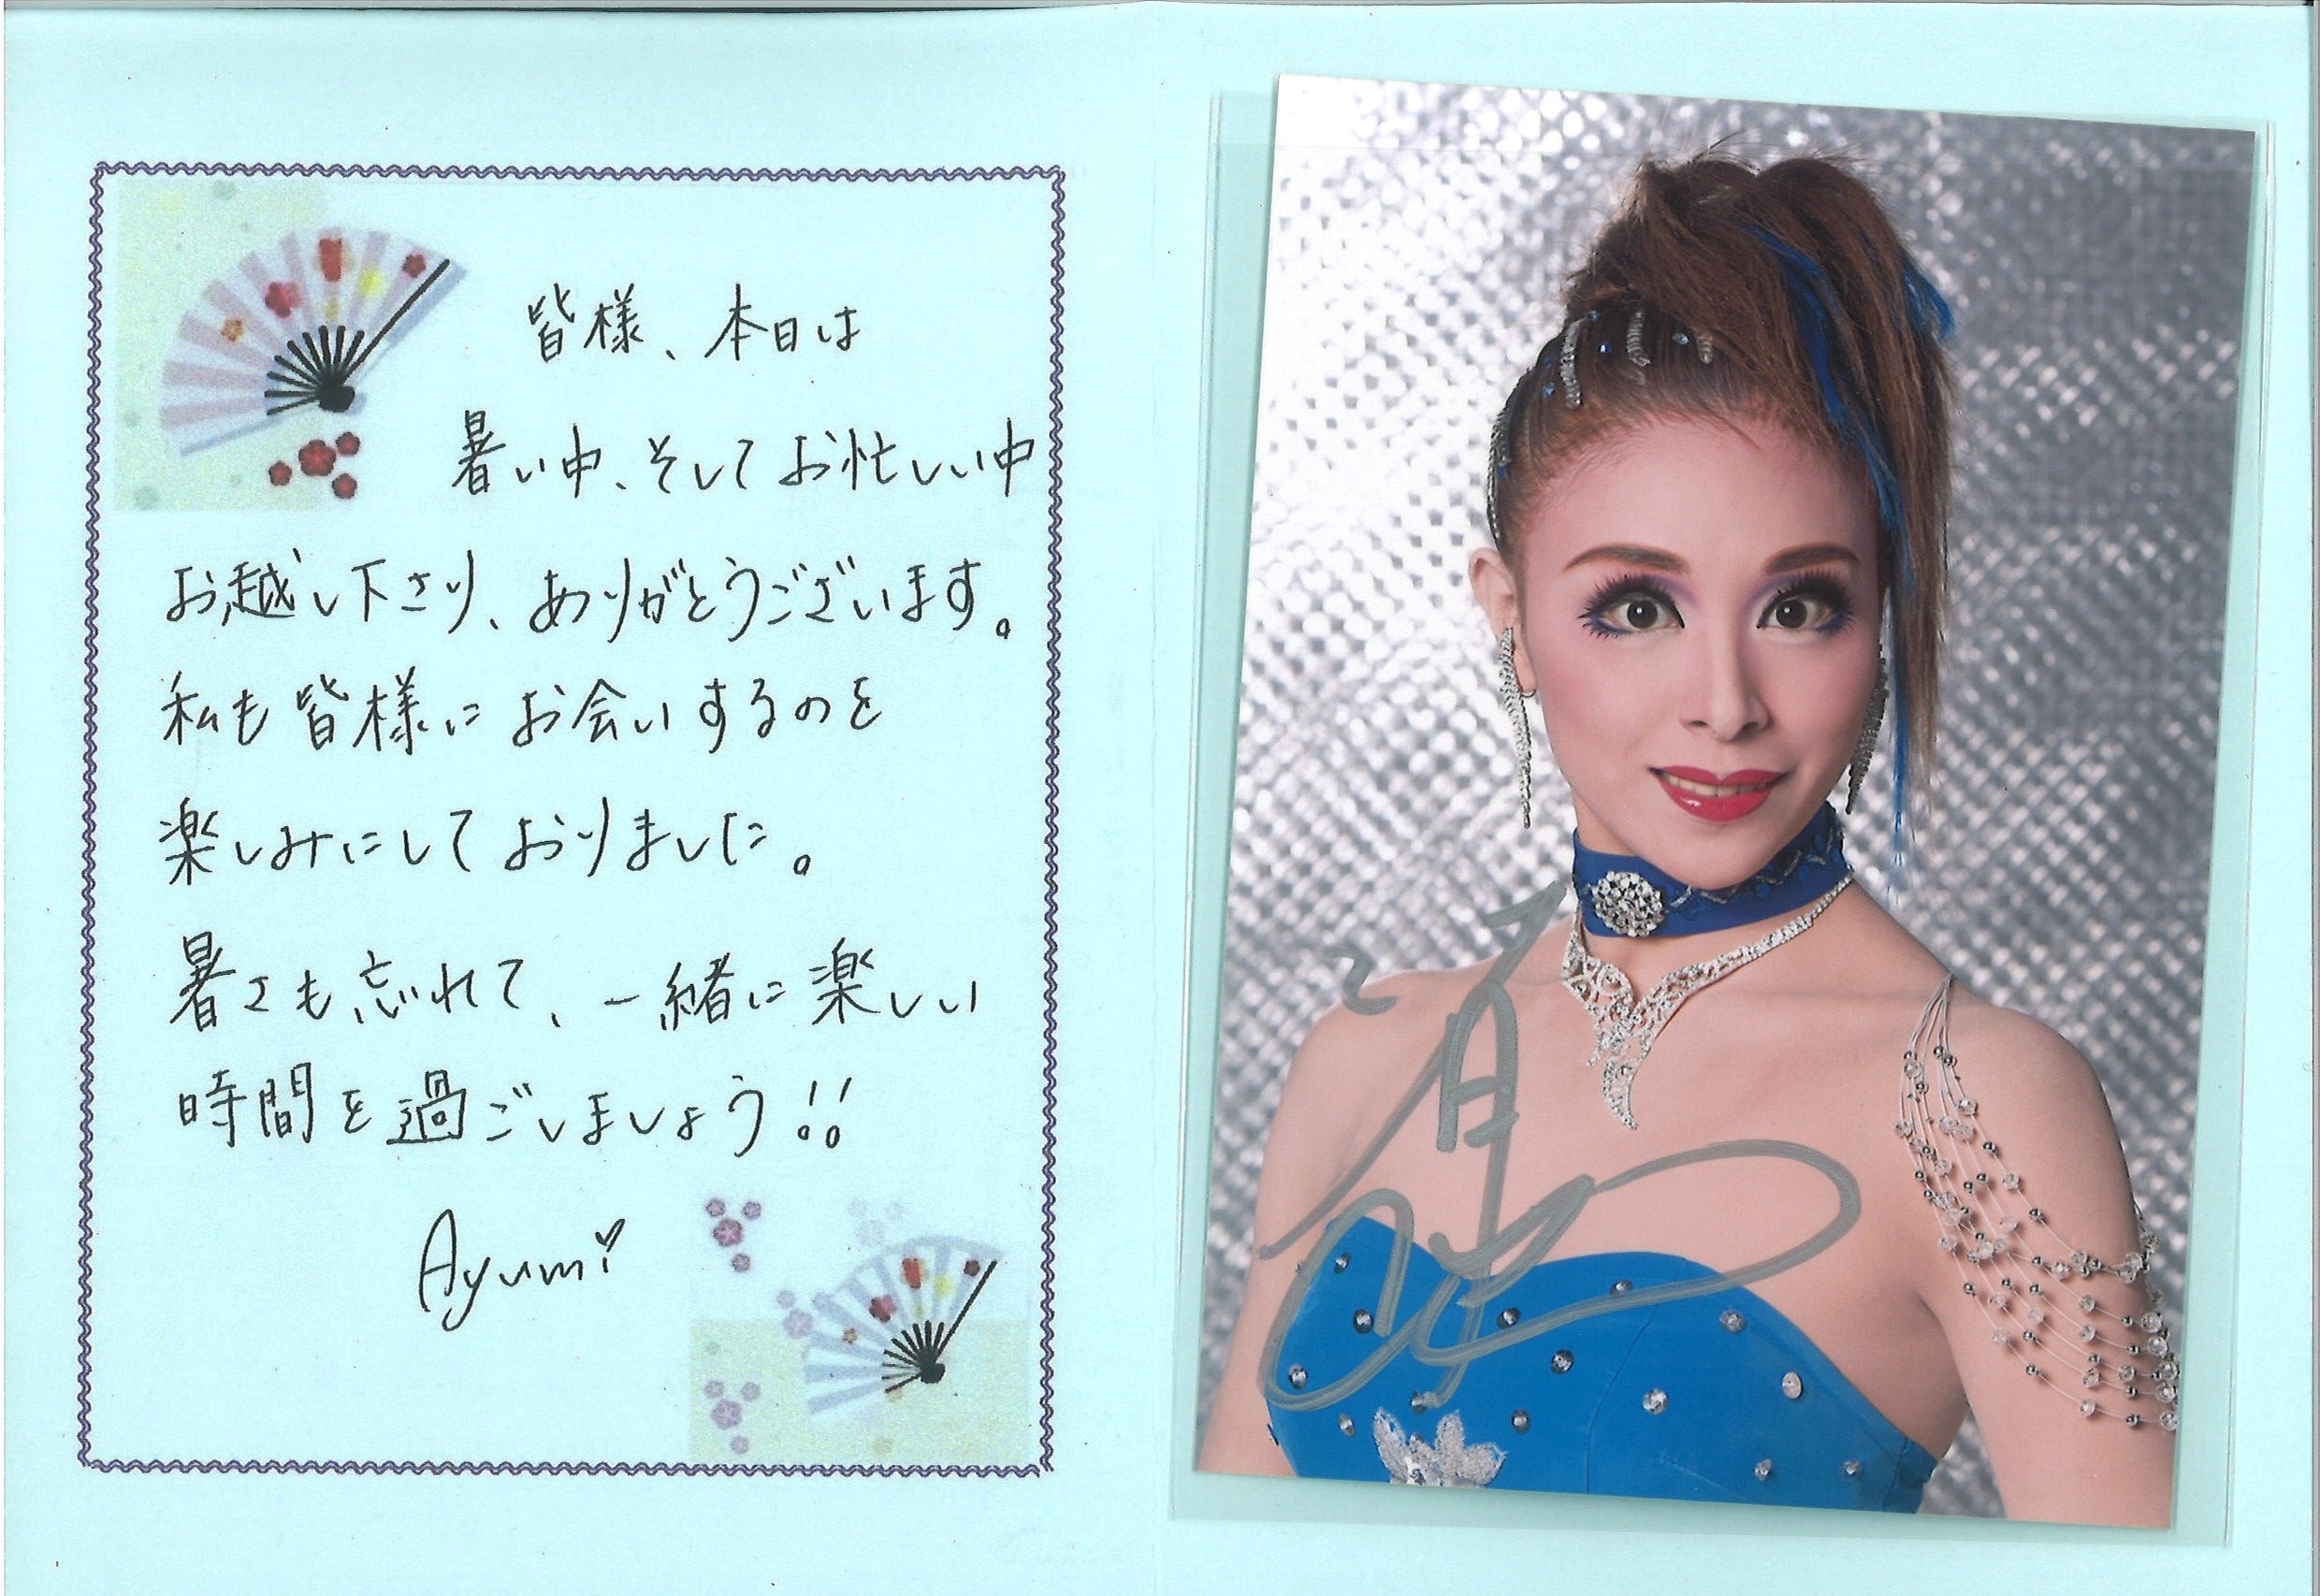 皆様、本日は
暑い中、そしてお忙しい中
お越し下さり、ありがとうございます。
私も皆様にお会いするのを
楽しみにしておりました。
暑さも忘れて、一緒に楽しい
時間を過ごしましょう!!
Ayumi